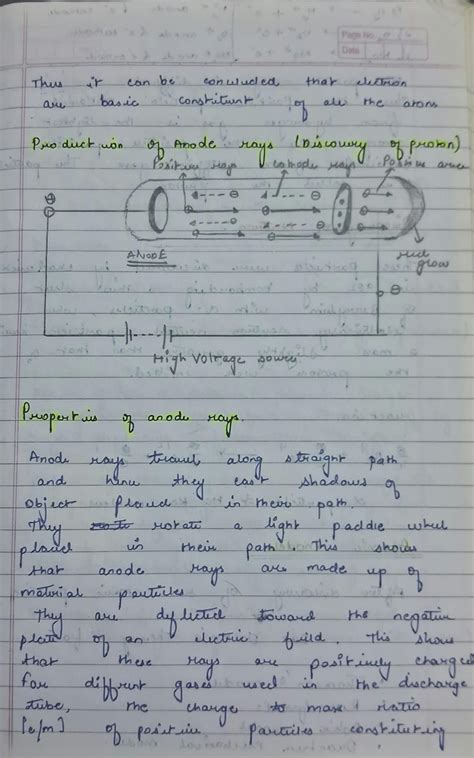 Page No.
Date
Thus it can be concluded that electron
are basic constituent of all the atoms
Production of Anode rays (Discovery of proton)
Positive rays Cathode rays Positive
ANODE
Red
glow
High Voltage source
Properties of anode rays.
Anode rays travel along straight path
and hence they cast shadows of
object placed in their path.
They rotate a light paddle wheel
placed in their path. This shows
that anode rays are made up of
material particles
They are deflected toward the negative
plate of an electric field. This show
that these rays are positively charged
For diffrent gases used in the discharge
tube, the charge to mass ratio
[e/m] of positive particles constituting